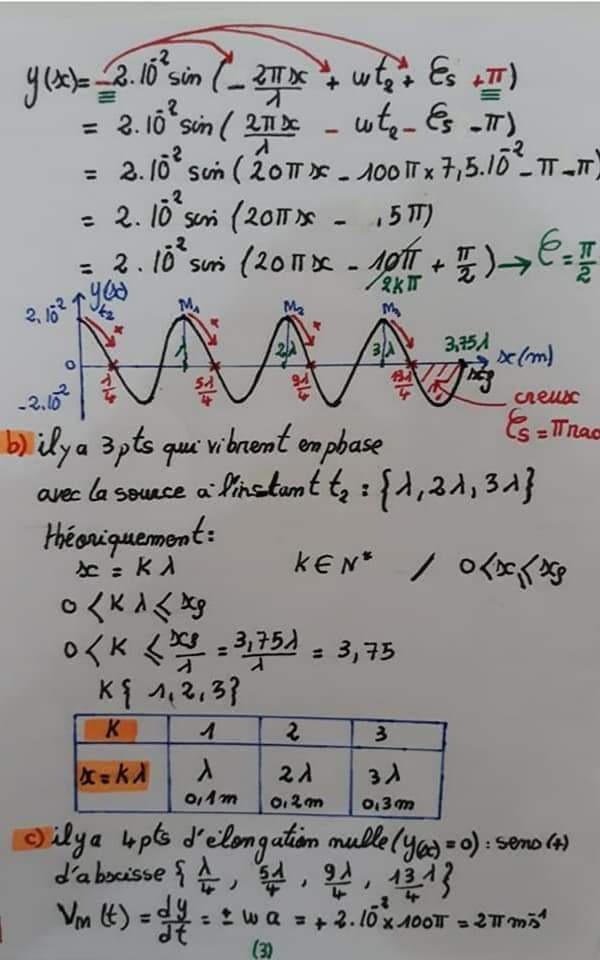 y(x)= -2.10⁻² sin (- 2πx/λ + wt₂ + φs +π)
= 2.10⁻² sin ( 2πx/λ - wt₂ - φs -π)
= 2.10⁻² sin (20πx - 100π x 7,5.10⁻² -π -π)
= 2.10⁻² sin (20πx - ,5π)
= 2.10⁻² sin (20πx - 10π + π/2) → φ = π/2
2kπ
y(x) t₂
2.10⁻² M₁ M₂ M₃
λ 2λ 3λ 3,75λ
0 x(m)
λ/4 5λ/4 9λ/4 13λ/4 xf
-2.10⁻² creux
φs = πrad
b) il y a 3 pts qui vibrent en phase
avec la source à l'instant t₂ : {λ, 2λ, 3λ}
théoriquement:
x = Kλ K ∈ N* / 0<x≤xf
0 < Kλ ≤ xf
0 < K ≤ xf/λ = 3,75λ/λ = 3,75
K{ 1, 2, 3}
K 1 2 3
x = Kλ λ 2λ 3λ
0,1m 0,2m 0,3m
c) il y a 4 pts d'élongation nulle (y(x) = 0) : sens (+)
d'abscisse { λ/4 , 5λ/4 , 9λ/4 , 13λ/4 }
V_M(t) = dy/dt = ± w a = + 2.10⁻² x 100π = 2π ms⁻¹
(3)